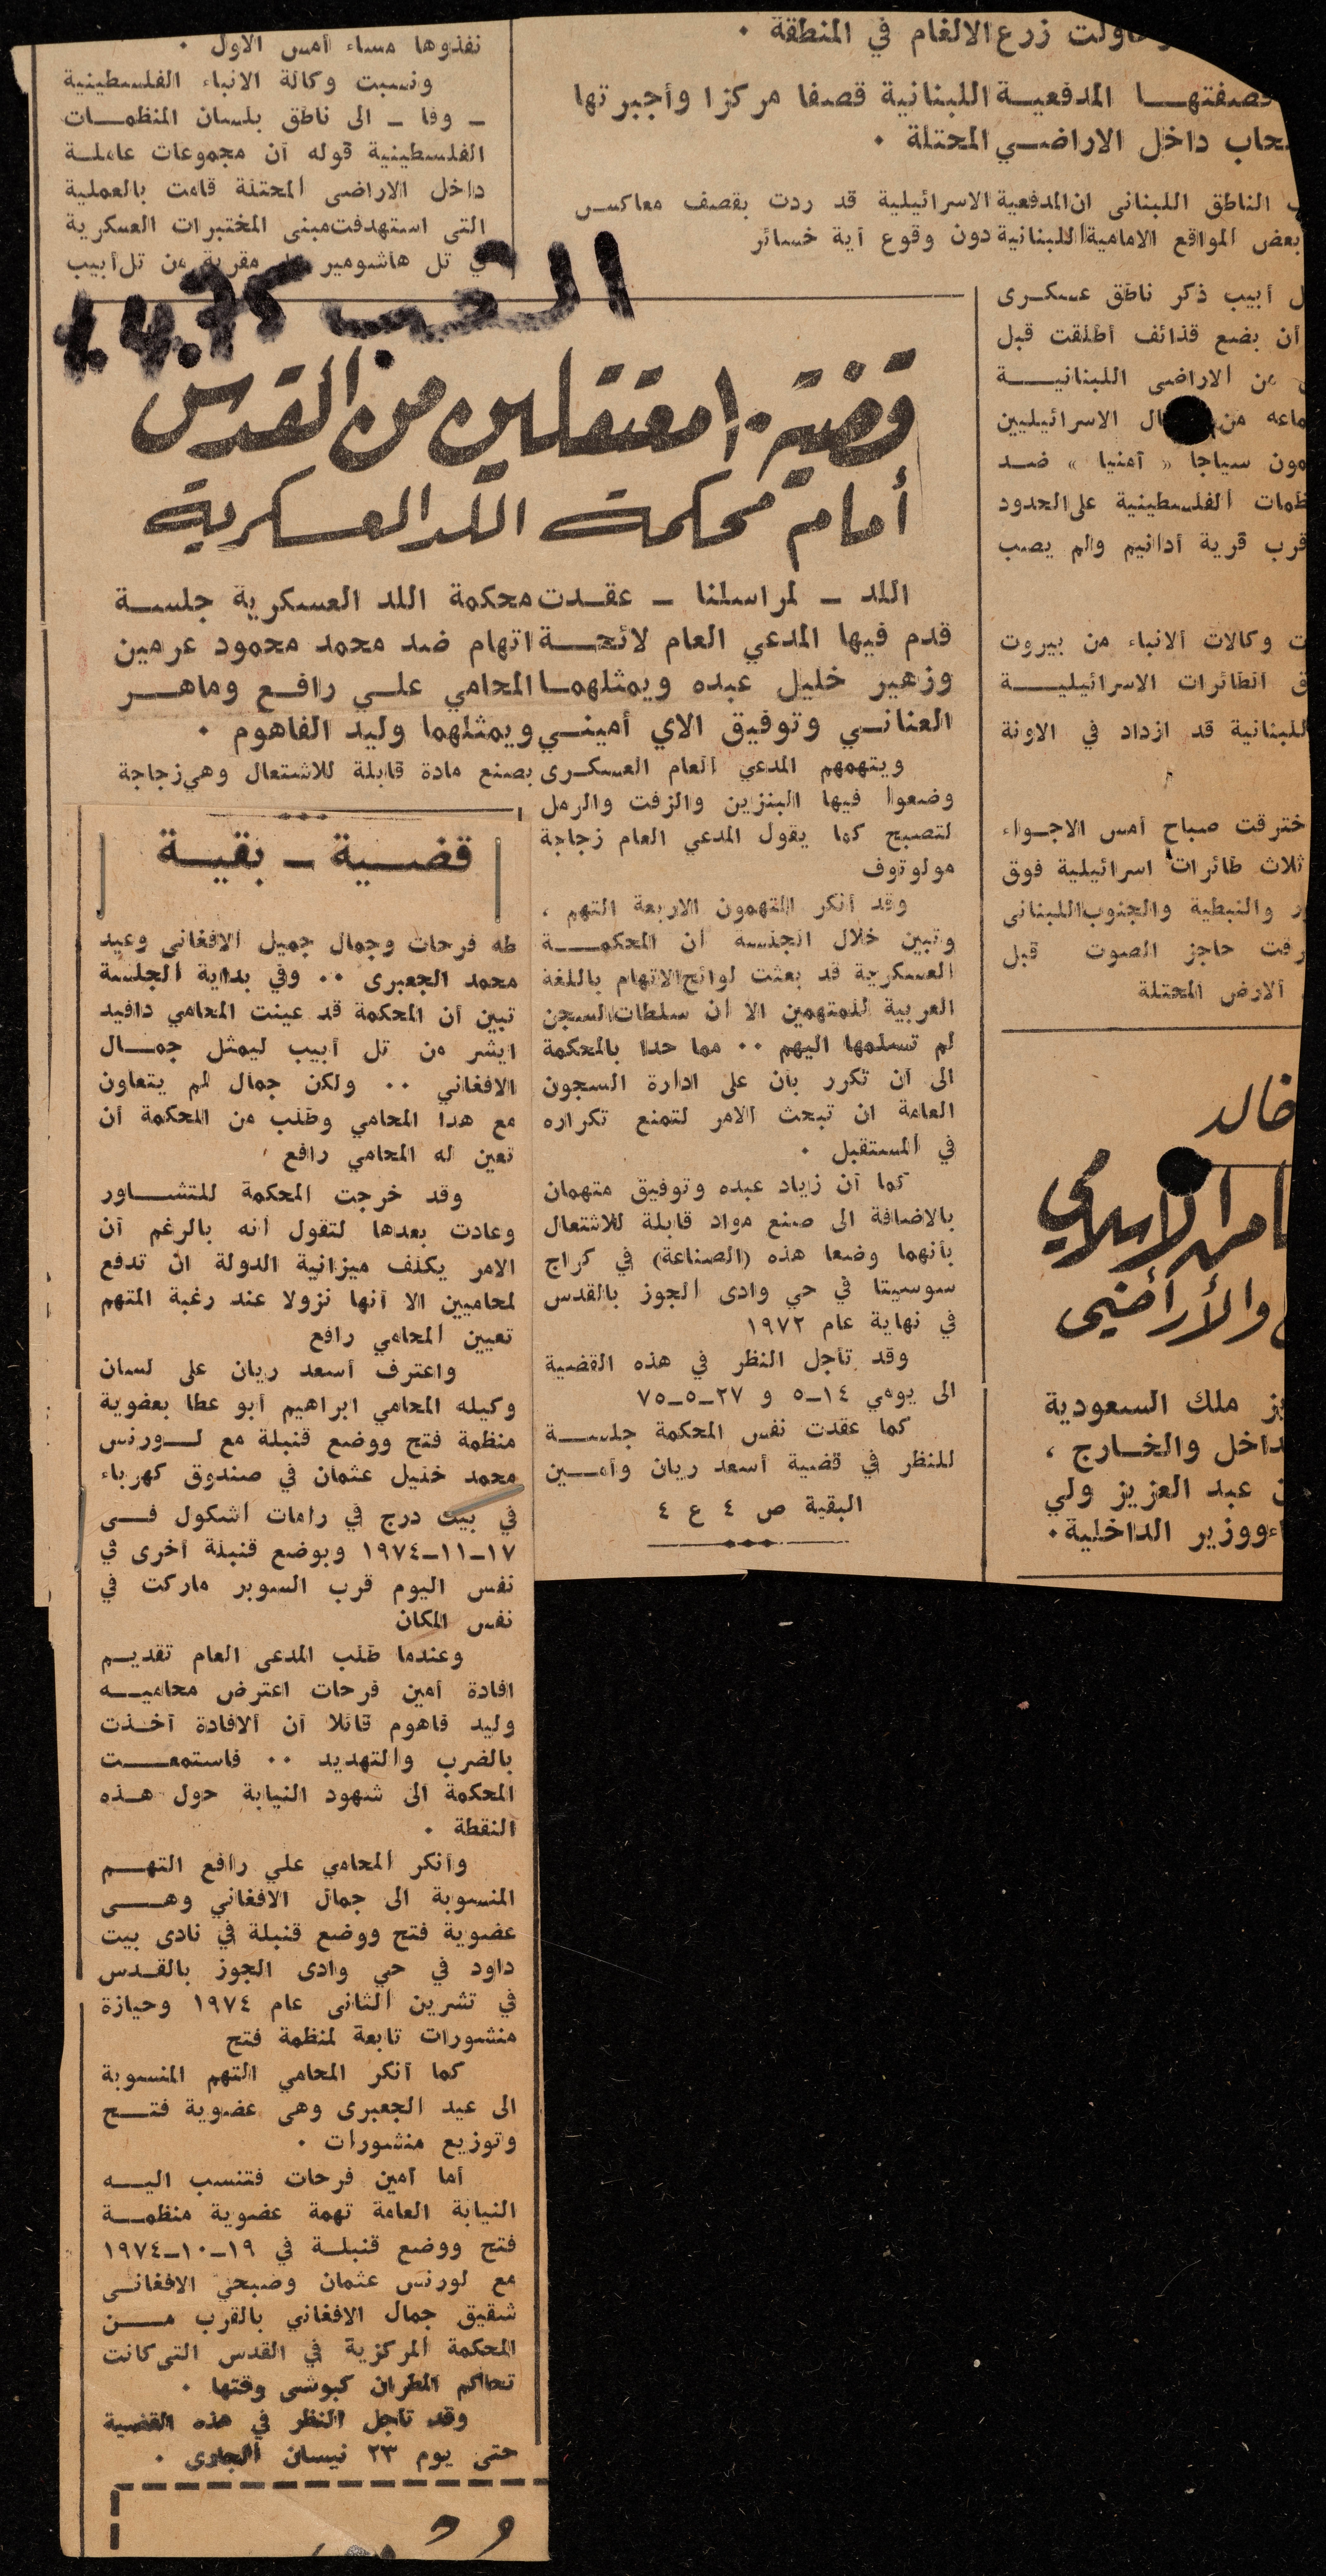 زرع الالغام في المنطقة .
قصفتها المدفعية اللبنانية قصفا مركزا وأجبرتها
داخل الاراضي المحتلة .
الناطق اللبنانى ان المدفعية الاسرائيلية قد ردت بقصف معاكس
بعض المواقع الامامية اللبنانية دون وقوع أية خسائر
أبيب ذكر ناطق عسكرى
أن بضع قذائف أطلقت قبل
من الاراضى اللبنانية
من الاسرائيليين
سياجا « أمنيا » ضد
الفلسطينية على الحدود
قرب قرية أدانيم ولم يصب
وكالات الانباء من بيروت
الطائرات الاسرائيلية
اللبنانية قد ازداد في الاونة
اخترقت صباح أمس الاجواء
ثلاث طائرات اسرائيلية فوق
والنبطية والجنوب اللبنانى
حاجز الصوت قبل
الارض المحتلة
خالد
الاسلامي
والأراضي
ملك السعودية
والخارج ،
عبد العزيز ولي
ووزير الداخلية .
نفذوها مساء أمس الاول .
ونسبت وكالة الانباء الفلسطينية
ـ وفا ـ الى ناطق بلسان المنظمات
الفلسطينية قوله أن مجموعات عاملة
داخل الاراضى المحتلة قامت بالعملية
التى استهدفت مبنى المختبرات العسكرية
في تل هاشومير على مقربة من تل أبيب
الشعب 1.4.75
قضية ١٠ معتقلين من القدس
أمام محكمة اللد العسكرية
اللد ـ لمراسلنا ـ عقدت محكمة اللد العسكرية جلسة
قدم فيها المدعي العام لائحة اتهام ضد محمد محمود عرمين
وزهير خليل عبده ويمثلهما المحامي علي رافع وماهر
العناني وتوفيق الاي أميني ويمثلهما وليد الفاهوم .
ويتهمهم المدعي العام العسكرى بصنع مادة قابلة للاشتعال وهي زجاجة
وضعوا فيها البنزين والزفت والرمل
لتصبح كما يقول المدعي العام زجاجة
مولوتوف
وقد أنكر المتهمون الاربعة التهم ،
وتبين خلال الجلسة أن المحكمة
العسكرية قد بعثت لوائح الاتهام باللغة
العربية للمتهمين الا ان سلطات السجن
لم تسلمها اليهم .. مما حدا بالمحكمة
الى أن تكرر بأن على ادارة السجون
العامة ان تبحث الامر لتمنع تكراره
في المستقبل .
كما أن زياد عبده وتوفيق متهمان
بالاضافة الى صنع مواد قابلة للاشتعال
بأنهما وضعا هذه (الصناعة) في كراج
سوسيتا في حي وادى الجوز بالقدس
في نهاية عام ١٩٧٢
وقد تأجل النظر في هذه القضية
الى يومي ١٤ـ٥ و ٢٧ـ٥ـ٧٥
كما عقدت نفس المحكمة جلسة
للنظر في قضية أسعد ريان وأمين
البقية ص ٤ ع ٤
قضية ـ بقية
طه فرحات وجمال جميل الافغانى وعيد
محمد الجعبرى .. وفي بداية الجلسة
تبين أن المحكمة قد عينت المحامي دافيد
ايشر من تل أبيب ليمثل جمال
الافغاني .. ولكن جمال لم يتعاون
مع هذا المحامي وطلب من المحكمة أن
تعين له المحامي رافع
وقد خرجت المحكمة للتشاور
وعادت بعدها لتقول أنه بالرغم أن
الامر يكلف ميزانية الدولة ان تدفع
لمحاميين الا أنها نزولا عند رغبة المتهم
تعيين المحامي رافع
واعترف أسعد ريان على لسان
وكيله المحامي ابراهيم أبو عطا بعضوية
منظمة فتح ووضع قنبلة مع لورنس
محمد خليل عثمان في صندوق كهرباء
في بيت درج في رامات أشكول في
١٧ـ١١ـ١٩٧٤ وبوضع قنبلة أخرى في
نفس اليوم قرب السوبر ماركت في
نفس المكان
وعندما طلب المدعى العام تقديم
افادة أمين فرحات اعترض محاميه
وليد فاهوم قائلا أن الافادة أخذت
بالضرب والتهديد .. فاستمعت
المحكمة الى شهود النيابة حول هذه
النقطة .
وأنكر المحامي علي رافع التهم
المنسوبة الى جمال الافغاني وهى
عضوية فتح ووضع قنبلة في نادى بيت
داود في حي وادى الجوز بالقدس
في تشرين الثانى عام ١٩٧٤ وحيازة
منشورات تابعة لمنظمة فتح
كما أنكر المحامي التهم المنسوبة
الى عيد الجعبرى وهى عضوية فتح
وتوزيع منشورات .
أما أمين فرحات فتنسب اليه
النيابة العامة تهمة عضوية منظمة
فتح ووضع قنبلة في ١٩ـ١٠ـ١٩٧٤
مع لورنس عثمان وصبحي الافغانى
شقيق جمال الافغاني بالقرب من
المحكمة المركزية في القدس التى كانت
تحاكم المطران كبوشى وقتها .
وقد تأجل النظر في هذه القضية
حتى يوم ٢٣ نيسان الجارى .